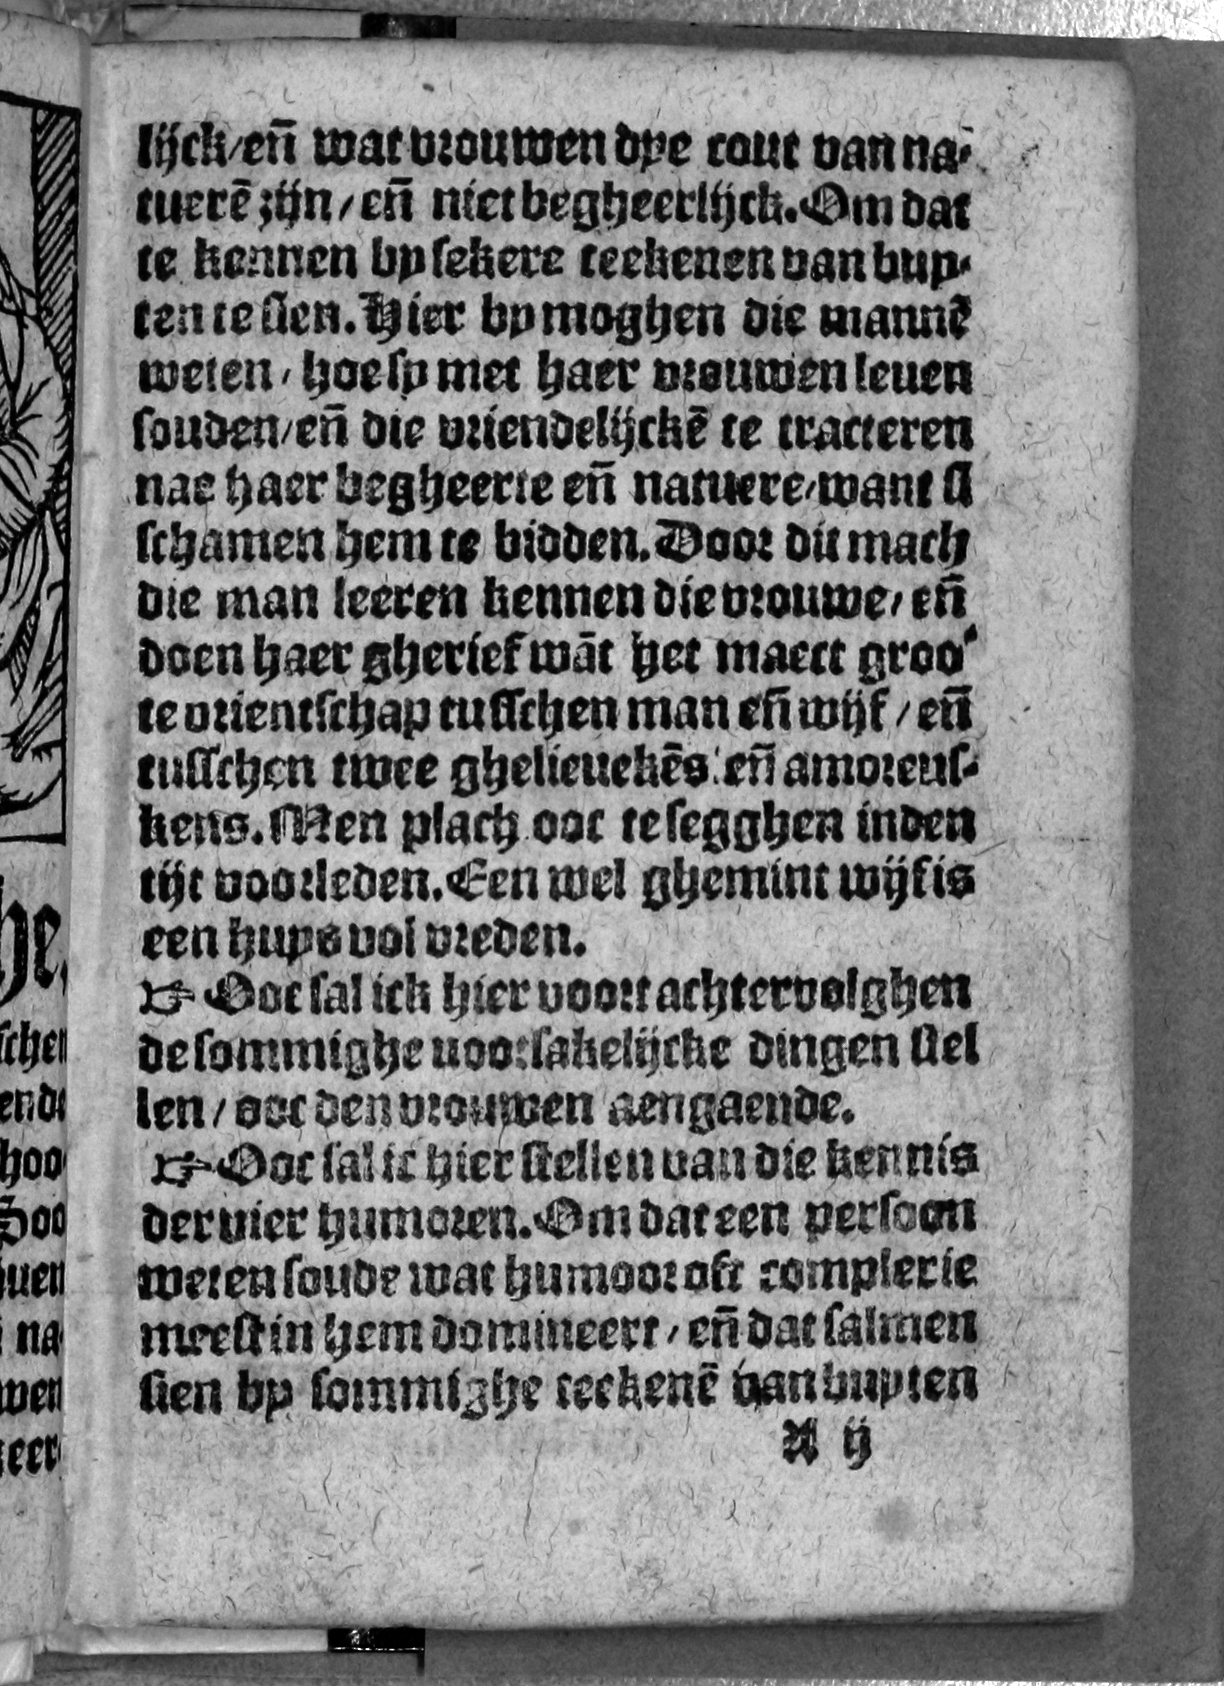 lijck/en̄ wat vrouwen dye cout van na-
tuerē zijn/en̄ niet begheerlijck. Om dat
te kennen by sekere teekenen van buy-
ten te sien. Hier by moghen die mannē
weten/hoe sy met haer vrouwen leuen
souden/en̄ die vriendelijckē te tracteren
nae haer begheerte en̄ natuere/want si
schamen hem te bidden. Door dit mach
die man leeren kennen die vrouwe/en̄
doen haer gherief wāt het maect groo-
te vrientschap tusschen man en̄ wijf/en̄
tusschen twee ghelieuekēs en̄ amoreus-
kens. Men plach ooc te segghen inden
tijt voorleden. Een wel ghemint wijf is
een huys vol vreden.
☞ Ooc sal ick hier voort achtervolghen
de sommighe nootsakelijcke dingen stel
len/ooc den vrouwen aengaende.
☞ Ooc sal ic hier stellen van die kennis
der vier humoren. Om dat een persoon
weten soude wat humoor oft complexie
meest in hem domineert/en̄ dat salmen
sien by sommighe teekenē van buyten
A ij
he,
schen
ende
hoo
Soo
uen
na
wen
eer